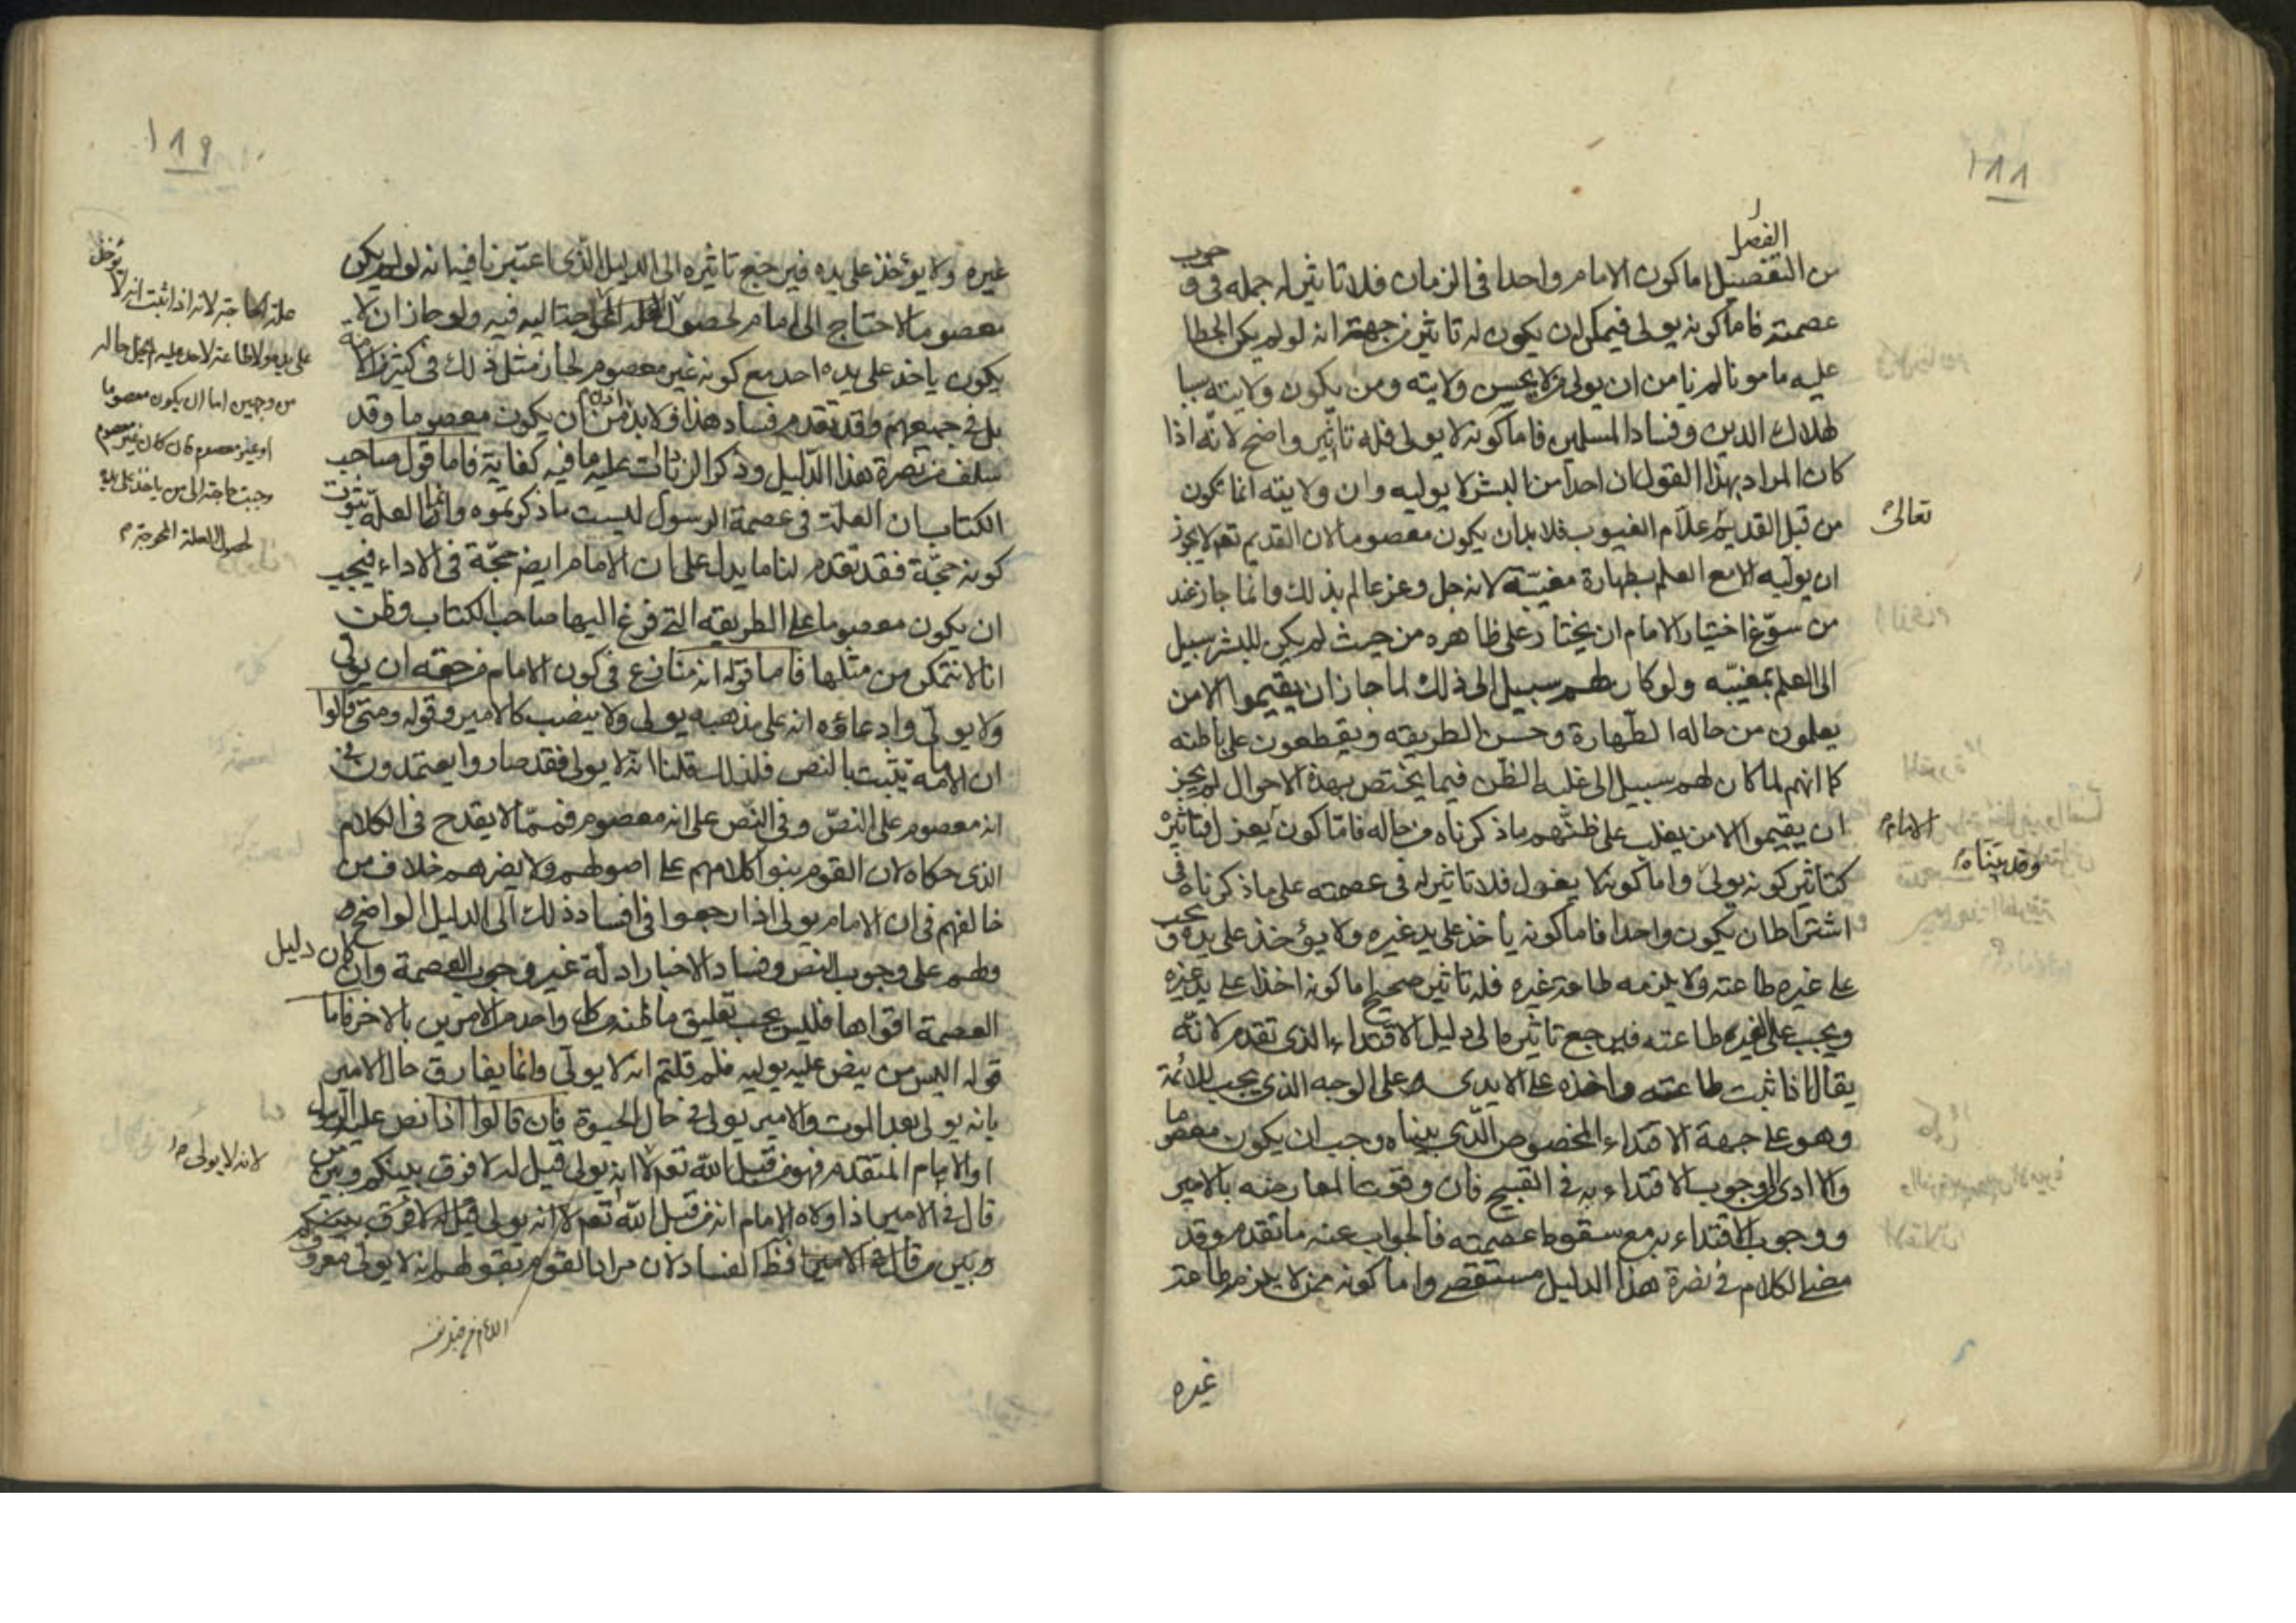 ١٨٨
الفصل
من التفصيل اما كون الامام واحدا في الزمان فلا تاثير له جملة في وجوب
عصمته فاما كونه يولى فيمكن ان يكون له تاثير من جهة انه لو لم يكن الخطا
عليه مامونا لم نامن ان يولى من لا يحسن ولايته ومن يكون ولايته سببا
لهلاك الدين وفساد المسلمين فاما كونه لا يولى فله تاثير واضح لانه اذا
كان المراد بهذا القول ان احدا من البشر لا يوليه وان ولايته انما تكون
من قبل القديم علام الغيوب فلا بد ان يكون معصوما لان القديم تعم لا يجوز
تعالى
ان يوليه الا مع العلم بطهارة مغيبه لانه جل وعز عالم بذلك وانما جاز عند
من سوغ اختيار الامام ان يختار على ظاهره من حيث لم يكن للبشر سبيل
الى العلم بمغيبه ولو كان لهم سبيل الى ذلك لما جاز ان يقيموا الا من
يعلمون من حاله الطهارة وحسن الطريقه ويقطعون على باطنه
كما انهم لما كان لهم سبيل الى غلبة الظن فيما يختص بهذه الاحوال لم يجز
ان يقيموا الا من يغلب على ظنهم ما ذكرناه من حاله فاما كون يعزل فتاثيره
الامام
كتاثير كونه يولى واما كونه لا يعزل فلا تاثير له في عصمته على ما ذكرناه في
وقد بيناه
اشتراط ان يكون واحدا فاما كونه ياخذ على يد غيره ولا يؤخذ على يده ويجب
على غيره طاعته ولا يلزمه طاعة غيره فله تاثير صحيح اما كونه اخذا على يد غيره
ويجب على الغير طاعته فيرجع تاثيرها الى دليل الاقتداء الذي تقدم لانه
يقال اذا ثبت طاعته واخذه على الايدى على الوجه الذي يجب للائمة
وهو على جهة الاقتداء المخصوص الذي بيناه وجب ان يكون معصوما
والا ادى الى وجوب الاقتداء به في القبيح فان وقوت المعارضه بالامير
ووجوب الاقتداء به مع سقوط عصمته فالجواب عنه ما تقدم وقد
مضى الكلام في نصرة هذا الدليل مستقصى واما كونه ممن لا يلزمه طاعة
غيره
١٨٩
غيره ولا يؤخذ على يده فيرجع تاثيره الى الدليل الذي اعتبرنا فيه انه لو لم يكن
معصوما لاحتاج الى امام لحصول العلة المحوجة اليه فيه ولو جاز ان لا
يكون ياخذ على يده احد مع كونه غير معصوم لجاز مثل ذلك في كثير من الامة
بل في جميعهم وقد تقدم فساد هذا فلا بد من ان يكون معصوما وقد
سلف من نصرة هذا الدليل وذكر الزيادات عليه ما فيه كفاية فاما قول صاحب
الكتاب ان العلة في عصمة الرسول ليست ما ذكرتموه وانما العلة ثبوت
كونه حجة فقد تقدم لنا ما يدل على ان الامام ايضا حجة في الاداء فيجب
ان يكون معصوما على الطريقه التي فزع اليها صاحب الكتاب وظن
انا لا نتمكن من مثلها فاما قوله انه منازع في كون الامام من حقه ان يولى
ولا يولى وادعاؤه انه على مذهبه يولى ولا ينصب كالامير وقوله ومتى قالوا
ان الامامة يثبت بالنص فلذلك قلنا انه لا يولى فقد صاروا يعتمدون في
انه معصوم على النص وفي النص على انه معصوم فمما لا يقدح في الكلام
الذي حكاه لان القوم بنوا كلامهم على اصولهم ولا يضرهم خلاف من
خالفهم في ان الامام يولى اذا رجعوا في افساد ذلك الى الدليل الواضح و
ولهم على وجوب النص وفساد الاختيار ادلة غير وجوب العصمة وان كان دليل
العصمة اقواها فليس يجب تعليق ما ظنه من كل واحد من الامرين بالاخر فاما
قوله اليس من ينص عليه يوليه فلم قلتم انه لا يولى وانما يفارق حال الامير
بانه يولى بعد الموت والامير يولى في حال الحيوة فان قالوا اذا نص عليه الرسول
او الامام المتقدم فهو من قبل الله تعم لا انه يولى قيل له لا فرق بينكم وبين من
قال في الامير اذا ولاه الامام انه من قبل الله تعم لا انه يولى قيل له لا فرق بينكم
وبين من قال في الامير فظ الفساد لان مراد القوم بقولهم انه لا يولى معروف
علة الحاجة لانه اذا ثبت انه لا يؤخذ
على يده ولا طاعة لاحد عليه لم يخل حاله
من وجهين اما ان يكون معصوما
او غير معصوم فان كان غير معصوم
وجبت حاجته الى من ياخذ على يده
لحصول العلة المحوجة
لانه لا يولى